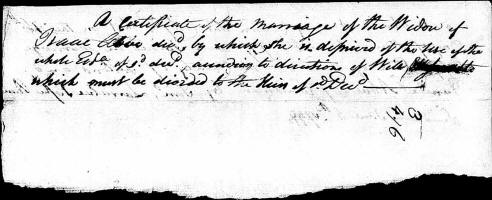 A certificate of the marriage of the Widow of
Isaac dec'd by which she is deprived of the use of the
whole Esta. of s'd dec'd, according to directions of Will
which must be divided to the Heirs of s'd Dec'd